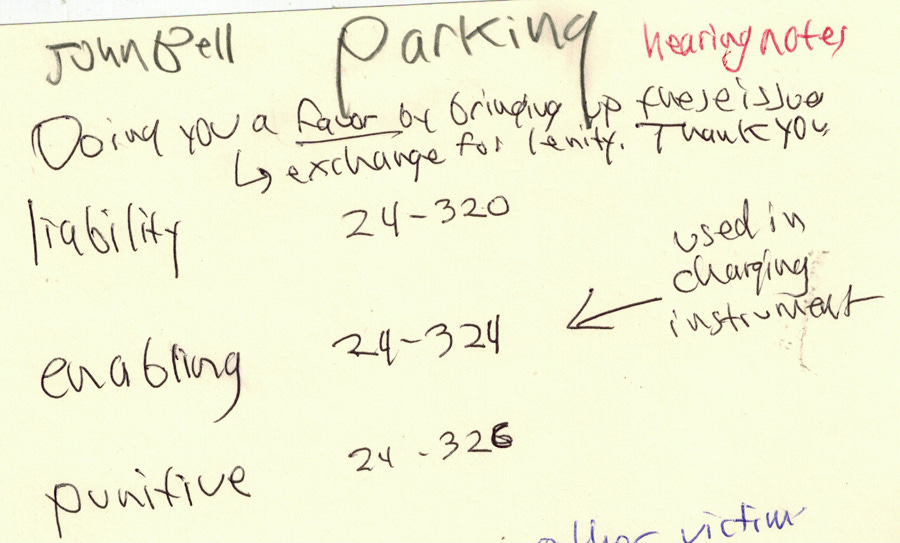 John Bell Parking hearing notes
Doing you a favor by bringing up these issue
↳ exchange for lenity. Thank you
liability 24-320
used in
charging
instrument
enabling 24-324
punitive 24-326
other victim